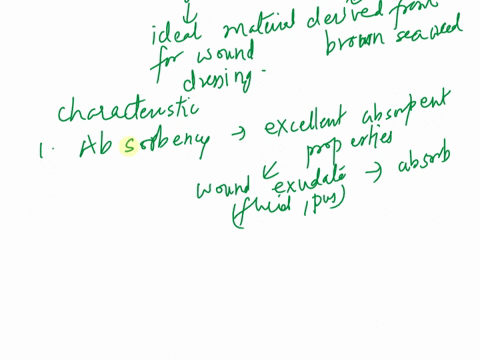 ideal material derived from
for wound brown seaweed
dressing.
characteristic
1. Absorbency → excellent absorpent
properties
wound exudate → absorb
(fluid, pus)